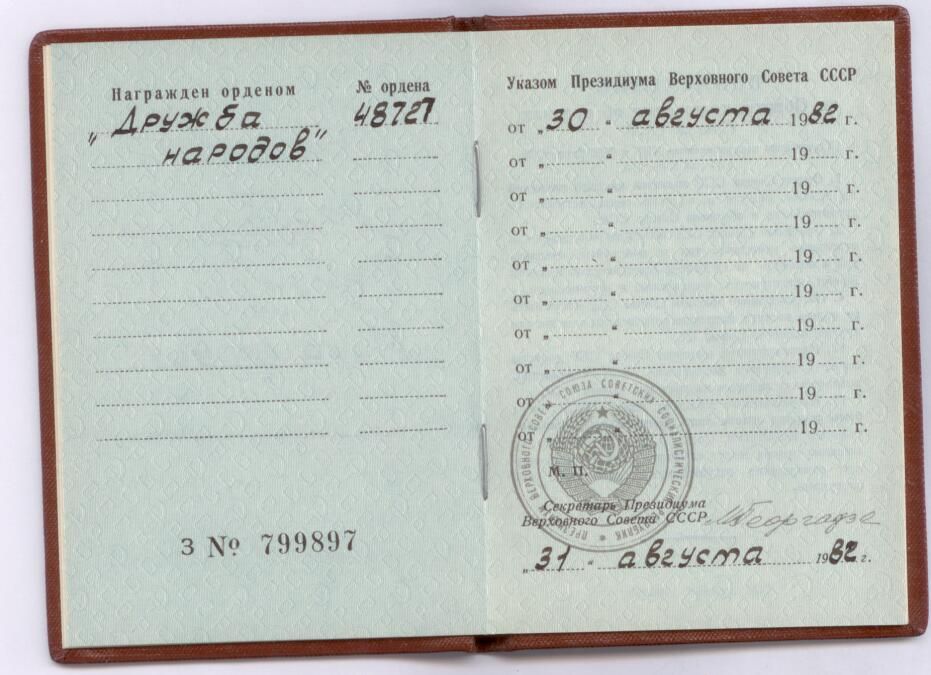 Награжден орденом
№ ордена
„Дружба
народов"
48727
З № 799897
Указом Президиума Верховного Совета СССР
от „30“ августа 1982 г.
от „ “ 19 г.
от „ “ 19 г.
от „ “ 19 г.
от „ “ 19 г.
от „ “ 19 г.
от „ “ 19 г.
от „ “ 19 г.
от „ “ 19 г.
от „ “ 19 г.
ПРЕЗИДИУМ ВЕРХОВНОГО СОВЕТА СОЮЗА СОВЕТСКИХ СОЦИАЛИСТИЧЕСКИХ РЕСПУБЛИК
М. П.
Секретарь Президиума
Верховного Совета СССР
МГеоргадзе
„31“ августа 1982 г.